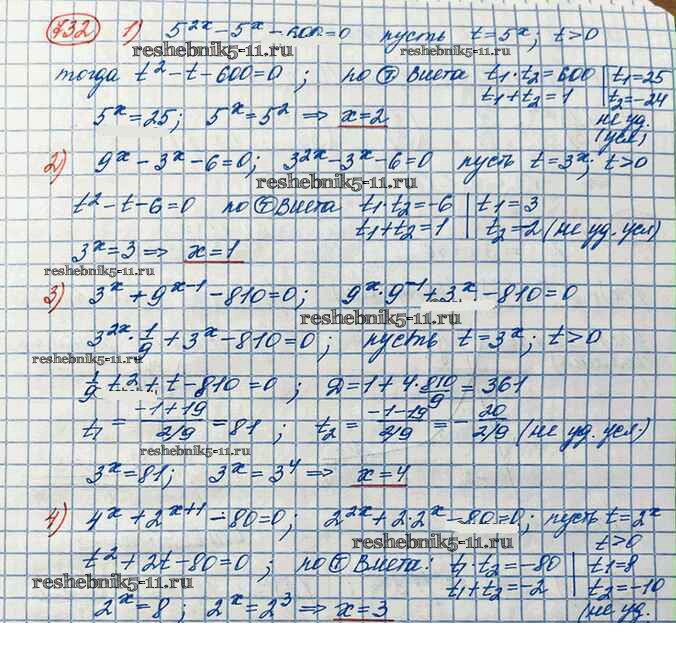 732 1) 5^2x - 5^x - 600 = 0 пусть t = 5^x; t > 0
reshebnik5-11.ru reshebnik5-11.ru
тогда t² - t - 600 = 0; по Ⓣ Виета t₁·t₂ = 600 | t₁ = 25
t₁ + t₂ = 1 | t₂ = -24
5^x = 25; 5^x = 5² => x = 2 не уд. усл)
2) 9^x - 3^x - 6 = 0; 3^2x - 3^x - 6 = 0 пусть t = 3^x; t > 0
reshebnik5-11.ru
t² - t - 6 = 0 по Ⓣ Виета t₁·t₂ = -6 | t₁ = 3
t₁ + t₂ = 1 | t₂ = -2 (не уд. усл)
3^x = 3 => x = 1
reshebnik5-11.ru
3) 3^x + 9^(x-1) - 810 = 0; 9^x · 9^-1 + 3^x - 810 = 0
reshebnik5-11.ru
3^2x · 1/9 + 3^x - 810 = 0; пусть t = 3^x; t > 0
reshebnik5-11.ru
1/9 t² + t - 810 = 0; D = 1 + 4 · 810/9 = 361
t₁ = (-1+19)/(2/9) = 81; t₂ = (-1-19)/(2/9) = -20/(2/9) (не уд. усл)
reshebnik5-11.ru
3^x = 81; 3^x = 3⁴ => x = 4
4) 4^x + 2^(x+1) - 80 = 0; 2^2x + 2·2^x - 80 = 0; пусть t = 2^x
t > 0
reshebnik5-11.ru
t² + 2t - 80 = 0; по Ⓣ Виета: t₁·t₂ = -80 | t₁ = 8
t₁ + t₂ = -2 | t₂ = -10
reshebnik5-11.ru
2^x = 8; 2^x = 2³ => x = 3 (не уд.
reshebnik5-11.ru